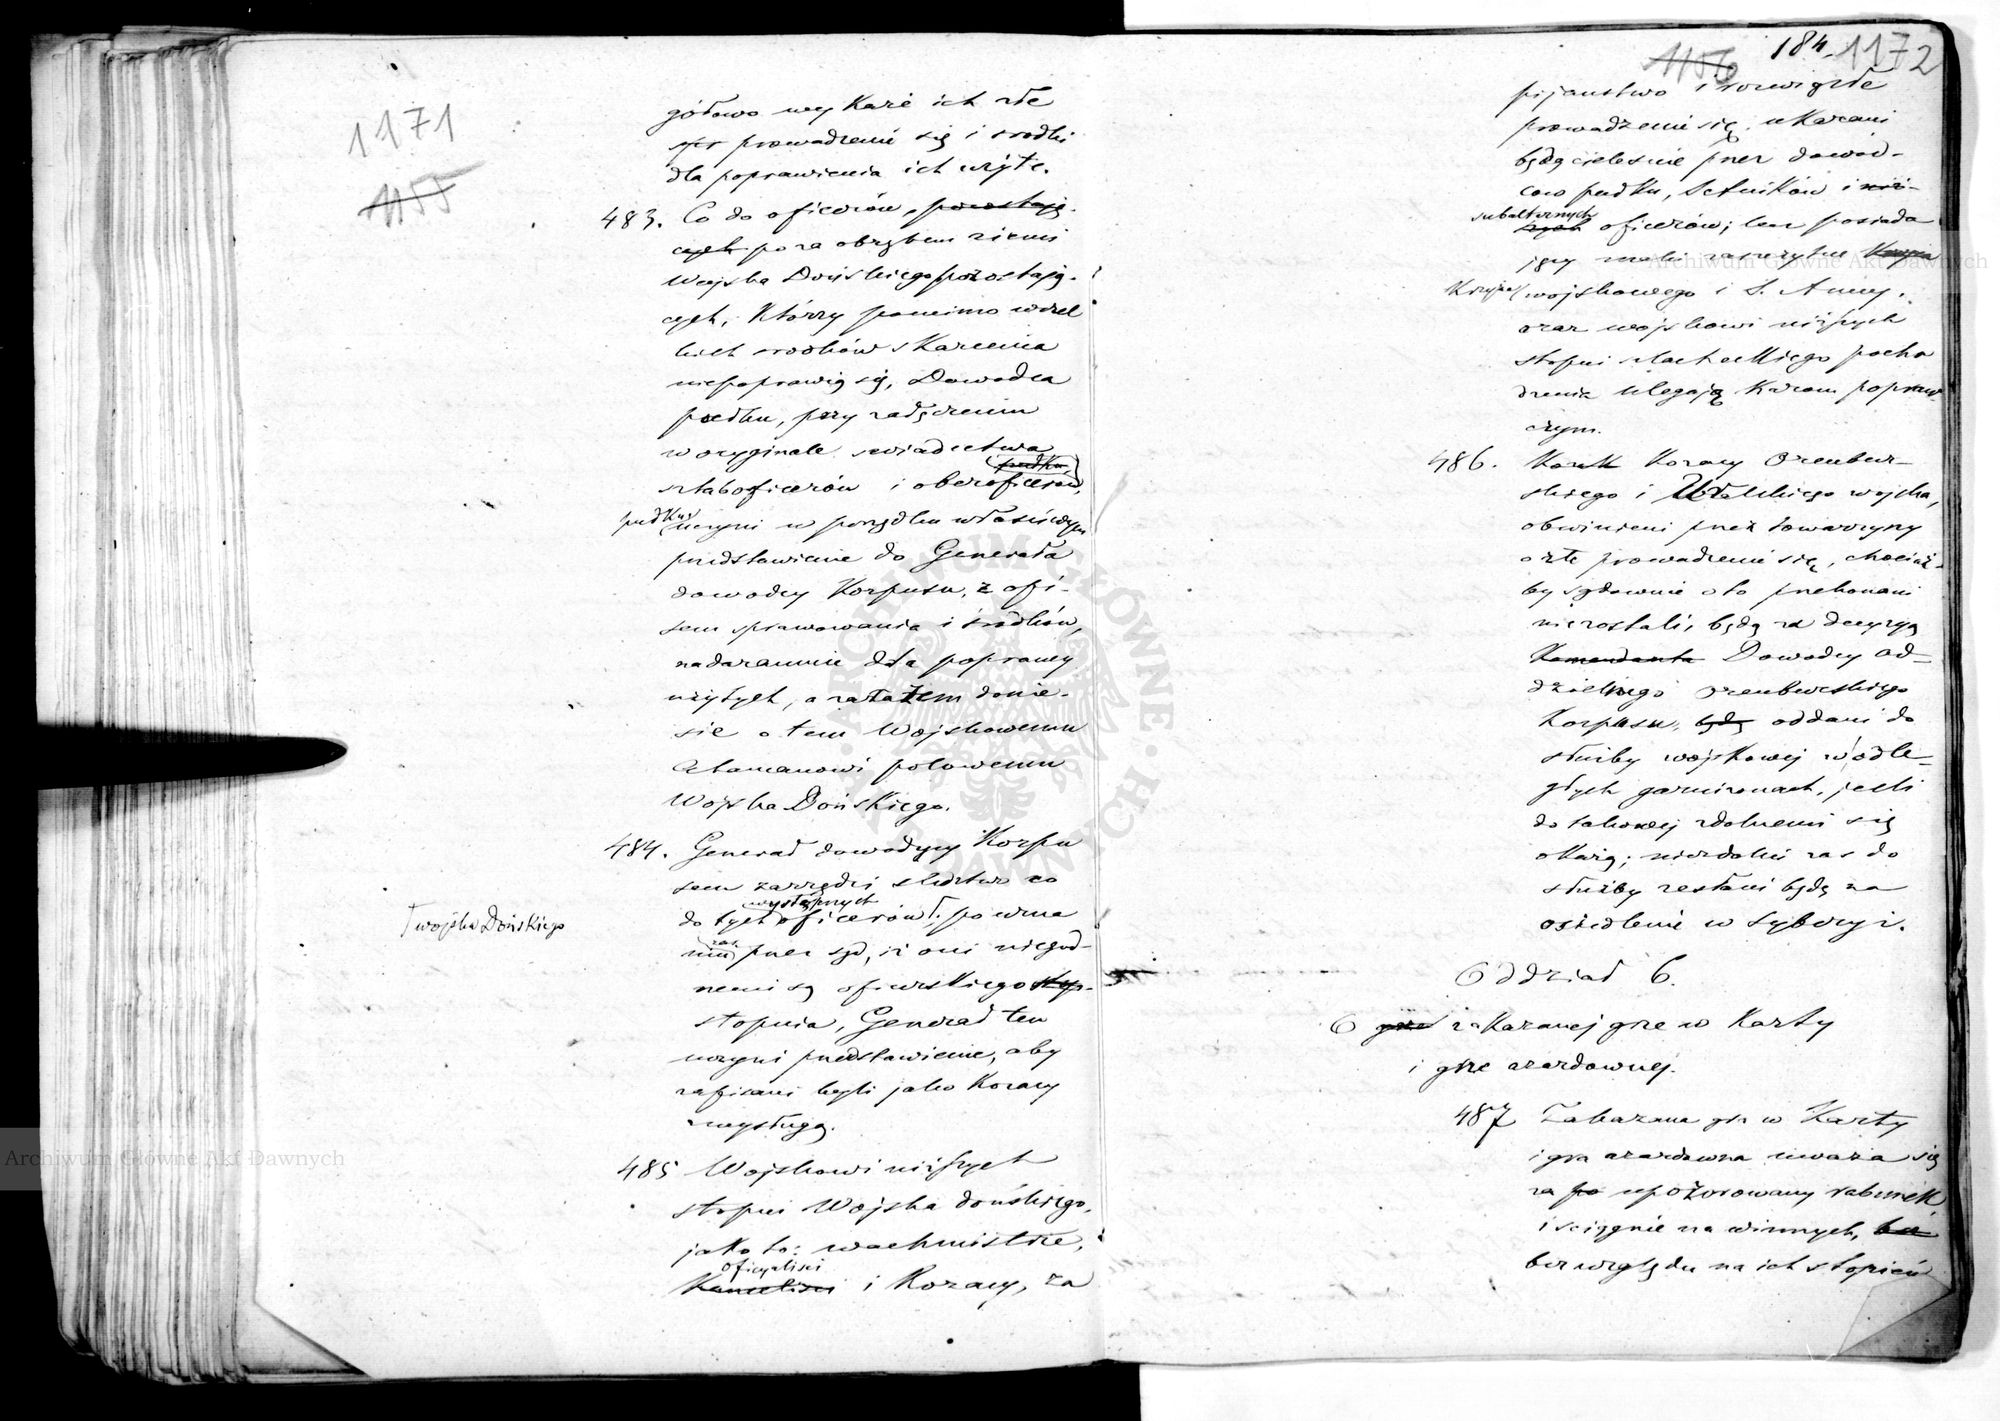 1171
1155
gółowo wykaże ich złe
prowadzenie się i środki
dla poprawienia ich użyte.
483. Co do oficerów, pozostają-
cych po za obrębem ziemi
Wojska Dońskiego pozostają-
cych, którzy pomimo wszel
kich środków skarcenia
niepoprawią się, Dowódca
pułku, przy załączeniu
w oryginale świadectwa
pułku
sztabsoficerów i oberoficerów,
pułku uczyni w porządku właściwym
przedstawienie do Generała
dowódcy Korpusu, z opi-
sem sprawowania i środków,
nadaremnie dla poprawy
użytych, a zatem donie-
sie o tem Wojskowemu
Atamanowi polowemu
Wojska Dońskiego.
484. Generał dowodzący Korpu
sem zarządzi śledztwo co
występnych
do tych oficerów
Wojska Dońskiego
przez sąd, iż oni niegod-
nemi są oficerskiego stop-
stopnia, Generał ten
uczyni przedstawienie, aby
zapisani byli jako Kozacy
wysługą.
485 Wojskowi niższych
stopni Wojska dońskiego,
jako to: wachmistrze,
oficyaliści
Kanceliści i Kozacy, za
1156 184. 1172
pijaństwo i rozwiązłe
prowadzenie się, ukarani
będą cieleśnie przez dowód-
ców pułku, Setników i niż-
subalternych
szych oficerów; lecz posiada
jący znaki zaszczytne Krzyża
Krzyża wojskowego i S. Anny,
oraz wojskowi niższych
stopni szlacheckiego pocho
dzenia ulegają karom popraw
czym.
486. Kozak Kozacy Orenbur-
skiego i Uralskiego wojska,
obwinieni przez towarzyszy
o złe prowadzenie się, chociaż-
by sądownie o to przekonani
nie zostali, będą za decyzyą
Komendanta Dowódcy Od-
dzielnego Orenburskiego
Korpusu, będą oddani do
służby wojskowej w odle-
głych garnizonach, jeśli
do takowej zdolnemi się
okażą; niezdolni zaś do
służby zesłani będą na
osiedlenie w Syberyi.
Oddział 6.
O grze zakazanej grze w Karty
i grze azardownej.
487 Zakazana gra w Karty
i gra azardowna uważa się
za po upozorowany rabunek
i ściągnie na winnych, bez
bez względu na ich stopień
Archiwum Główne Akt Dawnych
Archiwum Główne Akt Dawnych
ARCHIWUM GŁÓWNE AKT DAWNYCH